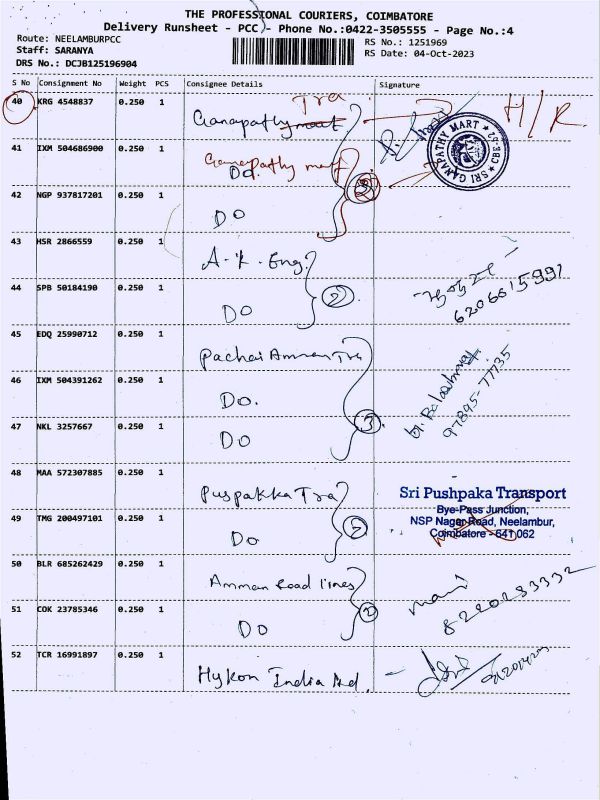 THE PROFESSIONAL COURIERS, COIMBATORE
Delivery Runsheet - PCC - Phone No.:0422-3505555 - Page No.:4
Route: NEELAMBURPCC
RS No.: 1251969
Staff: SARANYA
RS Date: 04-Oct-2023
DRS No.: DCJB125196904
S No Consignment No Weight PCS Consignee Details Signature
40 KRG 4548837 0.250 1 Ganapathy mart Tra H/R
SRI GANAPATHY MART
41 IXM 504686900 0.250 1 Ganapathy mart Do
42 NGP 937817201 0.250 1 DO
3
43 HSR 2866559 0.250 1 A.K. Eng.
44 SPB 50184190 0.250 1 DO
2
6206615991
45 EDQ 25990712 0.250 1 Pachai Amman Tra
46 IXM 504391262 0.250 1 Do.
47 NKL 3257667 0.250 1 DO
3
97895-77735
48 MAA 572307885 0.250 1 Puspakka Tra
Sri Pushpaka Transport
Bye-Pass Junction,
NSP Nagar Road, Neelambur,
Coimbatore - 641 062
49 TMG 200497101 0.250 1 Do
2
50 BLR 685262429 0.250 1 Amman Road lines
mani
8220283332
51 COK 23785346 0.250 1 DO
2
52 TCR 16991897 0.250 1 Hykon India Ltd.